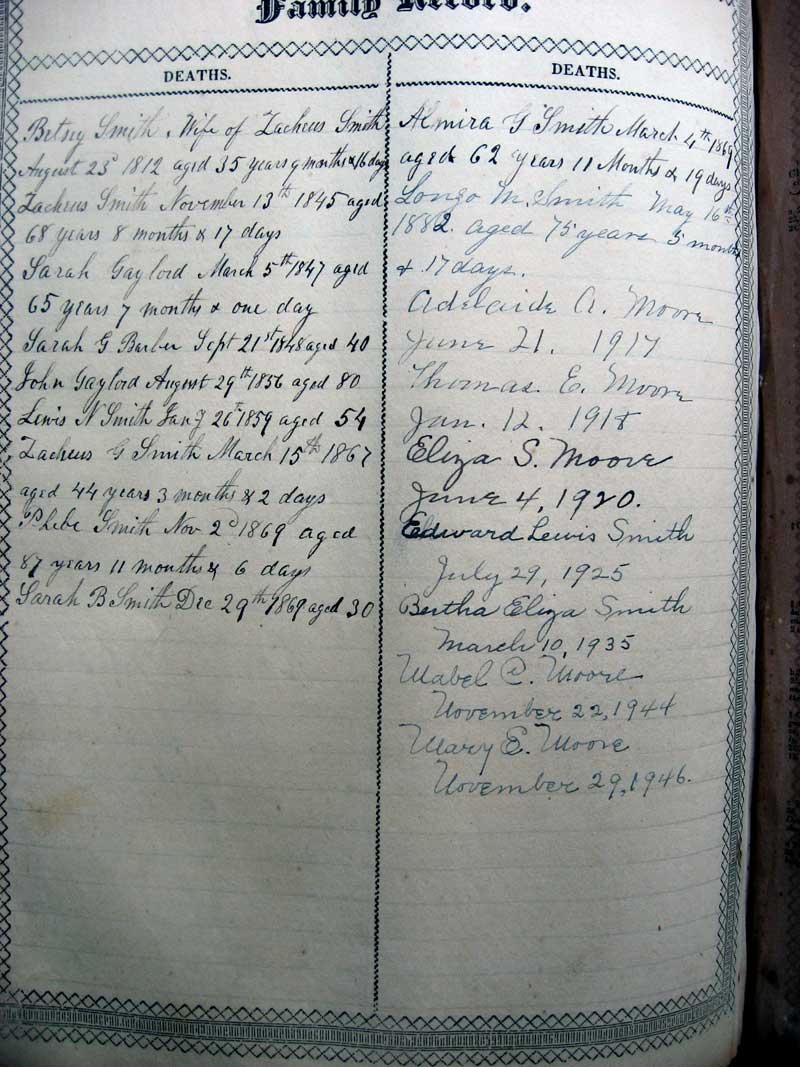 Family Record.
DEATHS.
Betsey Smith, Wife of Zacheus Smith
August 23d 1812 aged 35 years 9 months & 16 days
Zacheus Smith November 13th 1845 aged
68 years 8 months & 17 days
Sarah Gaylord March 5th 1847 aged
65 years 7 months & one day
Sarah G Barber Sept 21st 1848 aged 40
John Gaylord August 29th 1856 aged 80
Lewis N Smith Jany 26th 1859 aged 54
Zacheus G Smith March 15th 1867
aged 44 years 3 months & 2 days
Phebe Smith Nov 2d 1869 aged
87 years 11 months & 6 days
Sarah B Smith Dec 29th 1869 aged 30
DEATHS.
Almira G Smith March 4th 1869
aged 62 Years 11 Months & 19 days
M. Smith May 16th
1882. aged 75 years 5 months
& 17 days.
Adelaide A. Moore
June 21. 1917
Thomas. E. Moore
Jan. 12. 1918
Eliza S. Moore
June 4, 1920.
Edward Lewis Smith
July 29, 1925
Bertha Eliza Smith
March 10, 1935
Mabel C. Moore
November 22, 1944
Mary E. Moore
November 29, 1946.